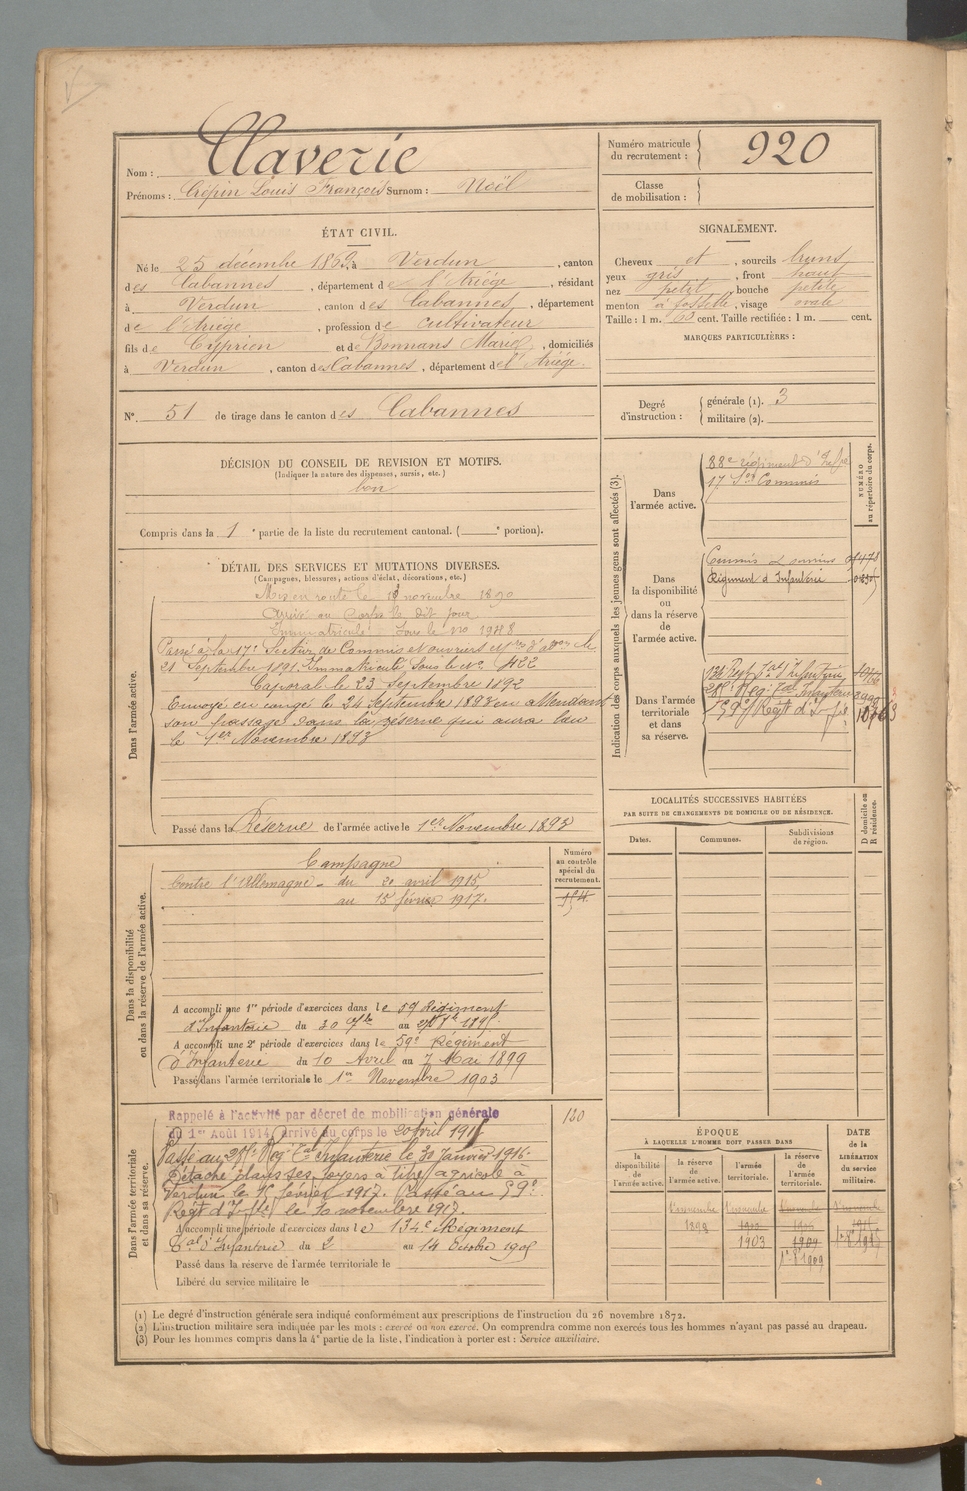 Nom : Claverie
Prénoms : Crépin Louis François Surnom : Noël
Numéro matricule du recrutement : 920
Classe de mobilisation :
ÉTAT CIVIL.
Né le 25 décembre 1869, à Verdun, canton
des Cabannes, département de l'Ariège, résidant
à Verdun, canton des Cabannes, département
de l'Ariège, profession de cultivateur
fils de Cyprien et de Bonnans Marie, domiciliés
à Verdun, canton des Cabannes, département de l'Ariège.
N° 51 de tirage dans le canton des Cabannes
SIGNALEMENT.
Cheveux et, sourcils bruns
yeux gris, front haut
nez petit, bouche petite
menton à fossette, visage ovale
Taille : 1 m. 63 cent. Taille rectifiée : 1 m. cent.
MARQUES PARTICULIÈRES :
Degré d'instruction : générale (1). 3
militaire (2).
DÉCISION DU CONSEIL DE REVISION ET MOTIFS.
(Indiquer la nature des dispenses, sursis, etc.)
bon
Compris dans la 1e partie de la liste du recrutement cantonal. ( e portion).
DÉTAIL DES SERVICES ET MUTATIONS DIVERSES.
(Campagnes, blessures, actions d'éclat, décorations, etc.)
Dans l'armée active.
Mis en route le novembre 1890
Arrivé au Corps le dit jour
Immatriculé sous le No 1988
Passé à la 17e Section de Commis et ouvriers le
21 Septembre 1891. Immatriculé sous le No 422
Caporal le 23 Septembre 1892
Envoyé en congé le 24 Septembre 1893 en attendant
son passage dans la réserve qui aura lieu
le 1er Novembre 1893
Passé dans la Réserve de l'armée active le 1er Novembre 1893
Dans la disponibilité ou dans la réserve de l'armée active.
Numéro au contrôle spécial du recrutement.
Campagne
Contre l'Allemagne - du 20 avril 1915,
au 15 février 1917.
A accompli une 1re période d'exercices dans le 59 Régiment
d'Infanterie du 30 au
A accompli une 2e période d'exercices dans le 59e Régiment
d'Infanterie du 10 Avril au 7 Mai 1899
Passé dans l'armée territoriale le 1er Novembre 1903
Dans l'armée territoriale et dans sa réserve.
130
Rappelé à l'activité par décret de mobilisation générale
du 1er Août 1914, arrivé au corps le 20 avril 1915
Passé au Régt Tal Infanterie le 30 Janvier 1916.
Détaché dans ses foyers à titre agricole à
Verdun le 15 février 1917. Passé au 59e
Régt d'Inf le 10 novembre 1917.
A accompli une période d'exercices dans le 134e Régiment
Tal d'Infanterie du 2 au 14 Octobre 1905
Passé dans la réserve de l'armée territoriale le
Libéré du service militaire le
Indication des corps auxquels les jeunes gens sont affectés (3).
NUMÉRO au répertoire du corps.
Dans l'armée active.
88e régiment d'Infie
17 Son Commis
Dans la disponibilité ou dans la réserve de l'armée active.
Commis
Régiment d'Infanterie
Dans l'armée territoriale et dans sa réserve.
134 Régt Tal d'Infanterie
Reg. Tal Infanterie
59e Régt d'Infie
LOCALITÉS SUCCESSIVES HABITÉES
PAR SUITE DE CHANGEMENTS DE DOMICILE OU DE RÉSIDENCE.
Dates. Communes. Subdivisions de région. D domicile ou R résidence.
ÉPOQUE
À LAQUELLE L'HOMME DOIT PASSER DANS
la disponibilité de l'armée active. la réserve de l'armée active. l'armée territoriale. la réserve de l'armée territoriale.
DATE de la LIBÉRATION du service militaire.
1 novembre 1893
1903
1909
(1) Le degré d'instruction générale sera indiqué conformément aux prescriptions de l'instruction du 26 novembre 1872.
(2) L'instruction militaire sera indiquée par les mots : exercé ou non exercé. On comprendra comme non exercés tous les hommes n'ayant pas passé au drapeau.
(3) Pour les hommes compris dans la 4e partie de la liste, l'indication à porter est : Service auxiliaire.